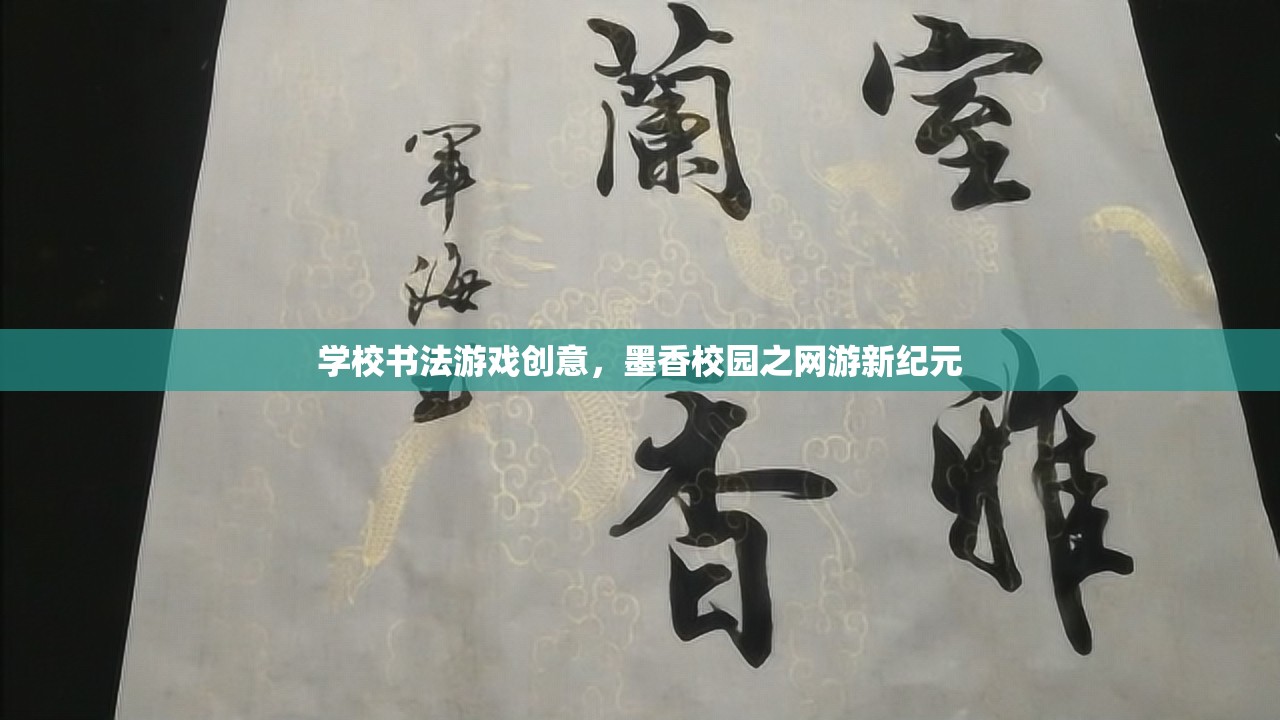 室雅
蘭香
軍海
学校书法游戏创意，墨香校园之网游新纪元